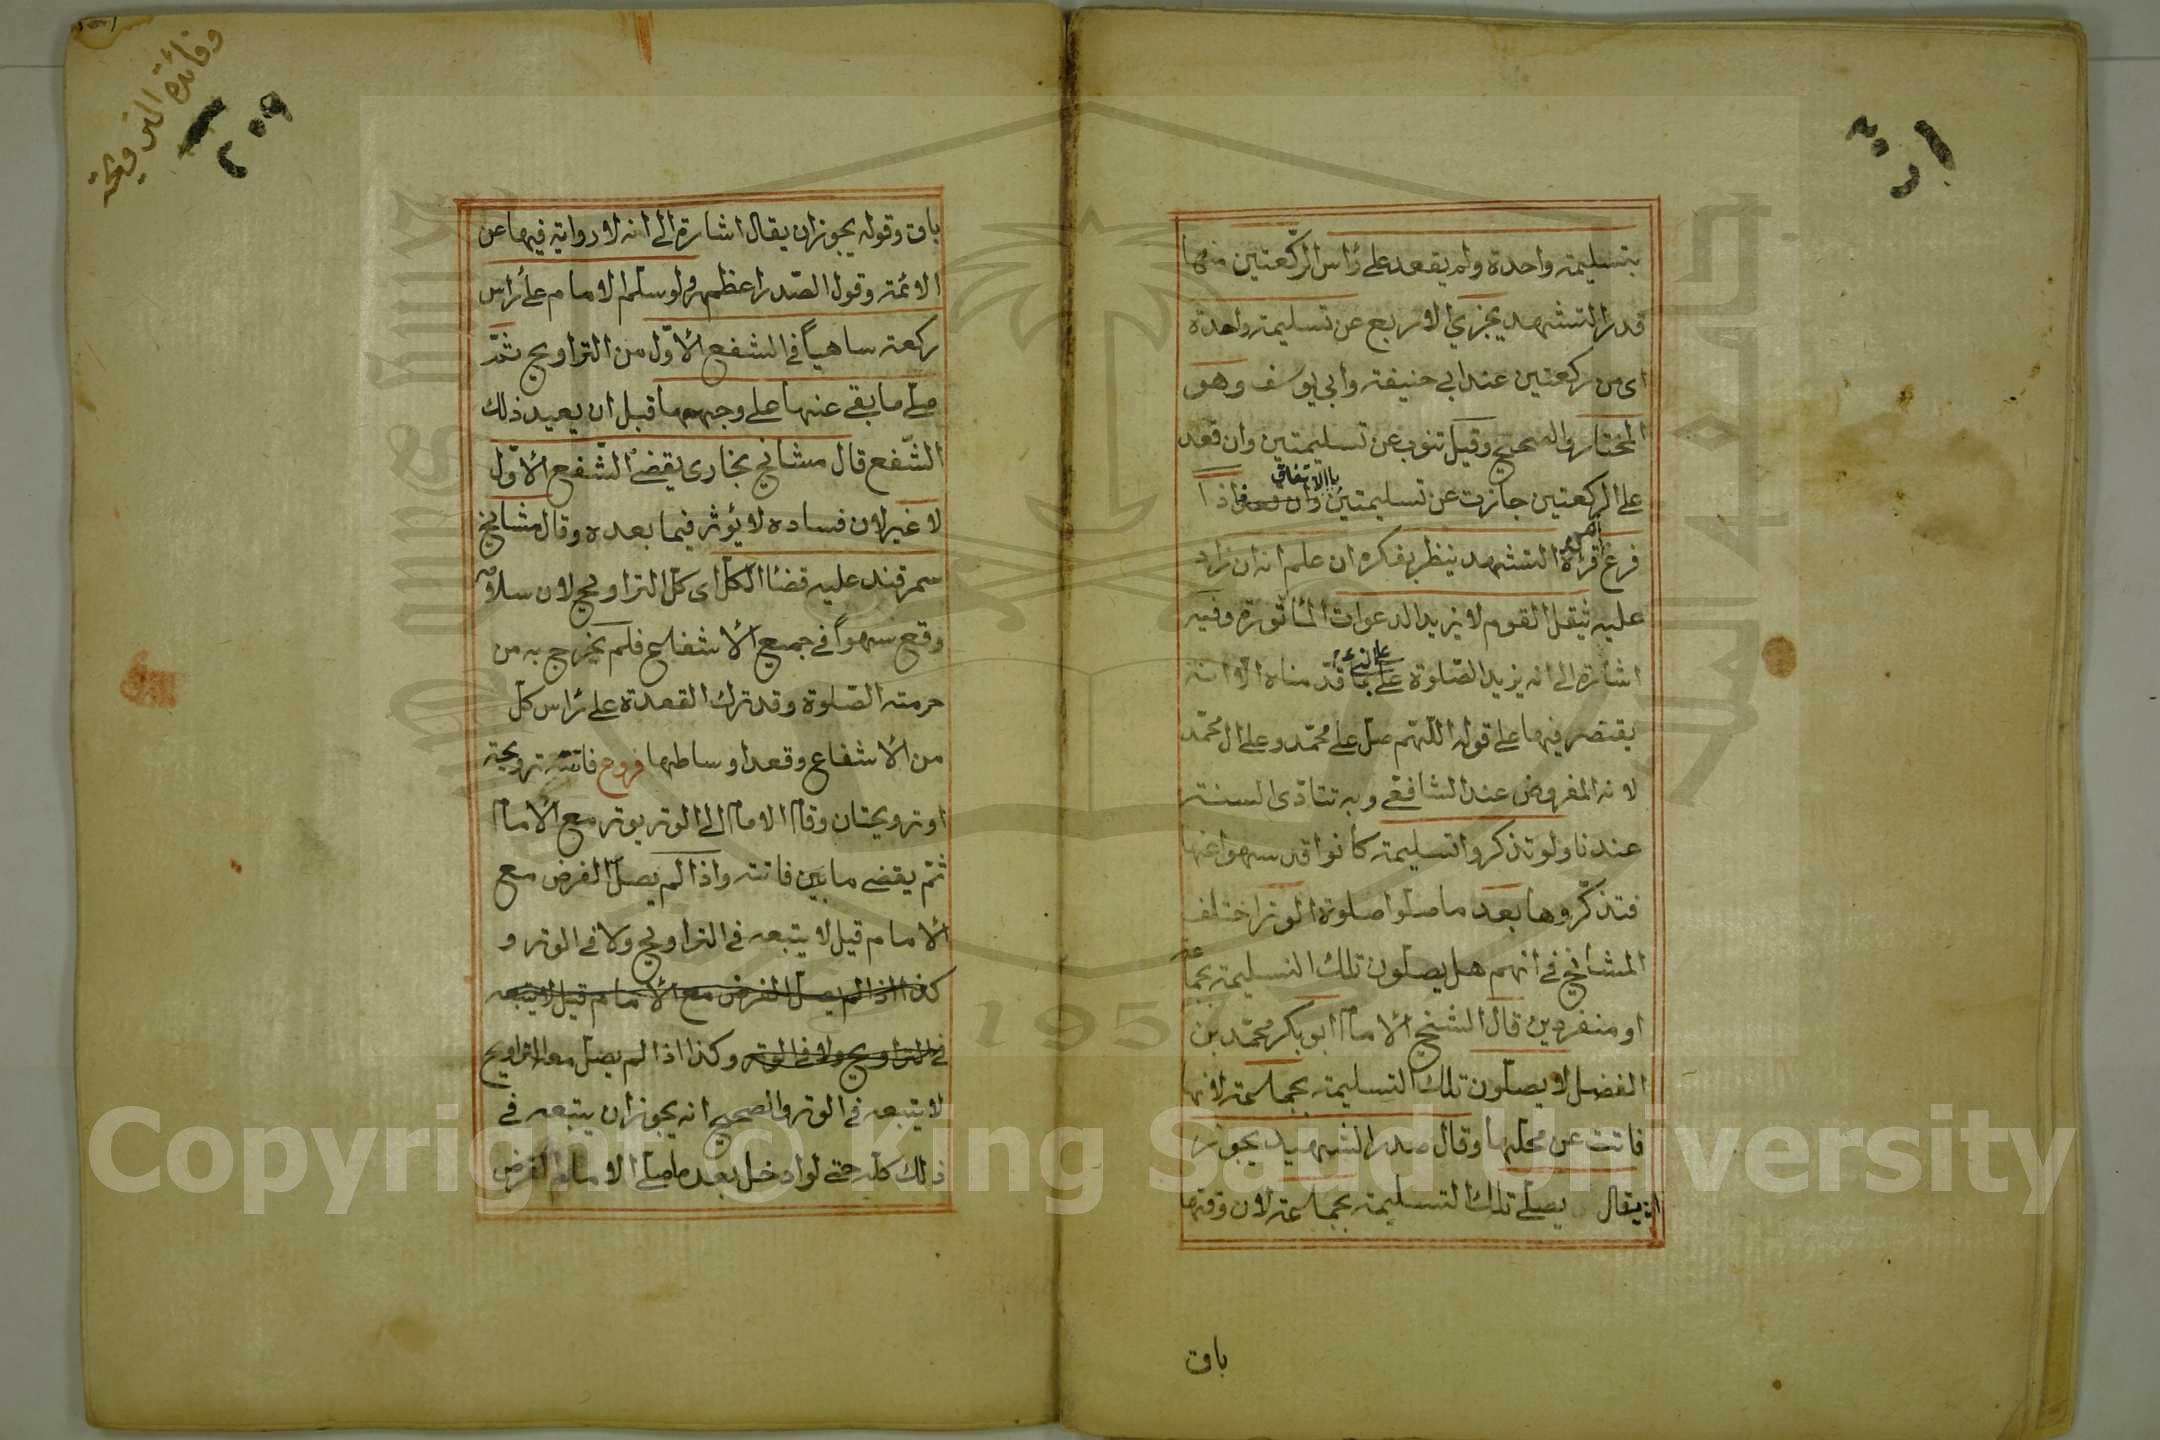 بتسليمة واحدة ولم يقعد على رأس الركعتين منها
قدر التشهد يجزي الاربع عن تسليمة واحدة
اى من ركعتين عند ابي حنيفة وابي يوسف وهو
المختار والصحيح وقيل تنوب عن تسليمتين وان قعد
على الركعتين جازت عن تسليمتين باالاتفاق فاذا
فرغ قرأة التشهد ينظر بفكره ان علم انه ان زاد
عليه يثقل القوم لا يزيد الدعوات المأثورة وفيه
اشارة الى انه يزيد الصلوة على قدمناه الا انه
يقتصر فيها على قوله اللهم صل على محمد وعلى ال محمد
لانه المفروض عند الشافعي وبه تتادى السنة
عندنا ولو تذكروا تسليمة كانوا قد سهوا عنها
فتذكروها بعد ما صلوا صلوة الوتر اختلف
المشائخ في انهم هل يصلون تلك التسليمة بجماعة
او منفردين قال الشيخ الامام ابو بكر محمد بن
الفضل لا يصلون تلك التسليمة بجماعة لانها
فاتت عن محلها وقال صدر الشهيد يجوز
ان يقال يصلى تلك التسليمة بجماعة لان وقتها
باق
وفائدة الترويحة
٢٠٩
باق وقوله يجوز ان يقال اشارة الى انه لا رواية فيها عن
الائمة وقول الصدر اعظم ولو سلم الامام على رأس
ركعة ساهيا في الشفع الاول من التراويح ثم
صلى ما بقي عنها على وجهها قبل ان يعيد ذلك
الشفع قال مشائخ بخارى يقضى الشفع الاول
لا غير لان فساده لا يؤثر فيما بعده وقال مشائخ
سمرقند عليه قضا الكل اى كل التراويح لان سلامه
وقع سهوا في جميع الاشفاع فلم يخرج به من
حرمة الصلوة وقد ترك القعدة على رأس كل
من الاشفاع وقعد اوساطها فروع فاتته ترويحة
او ترويحتان وقام الامام الى الوتر يوتر مع الامام
ثم يقضى مابين فاتته واذا لم يصل الفرض مع
الامام قيل لا يتبعه في التراويح ولا في الوتر و
كذا اذا لم يصل الفرض مع الامام قيل لا يتبعه
في التراويح ولا في الوتر وكذا اذا لم يصل معه التراويح
لا يتبعه في الوتر والصحيح انه يجوز ان يتبعه في
ذلك كله حتى لو ادخل بعد ما صلى الامام الفرض
Copyright © King Saud University
1957